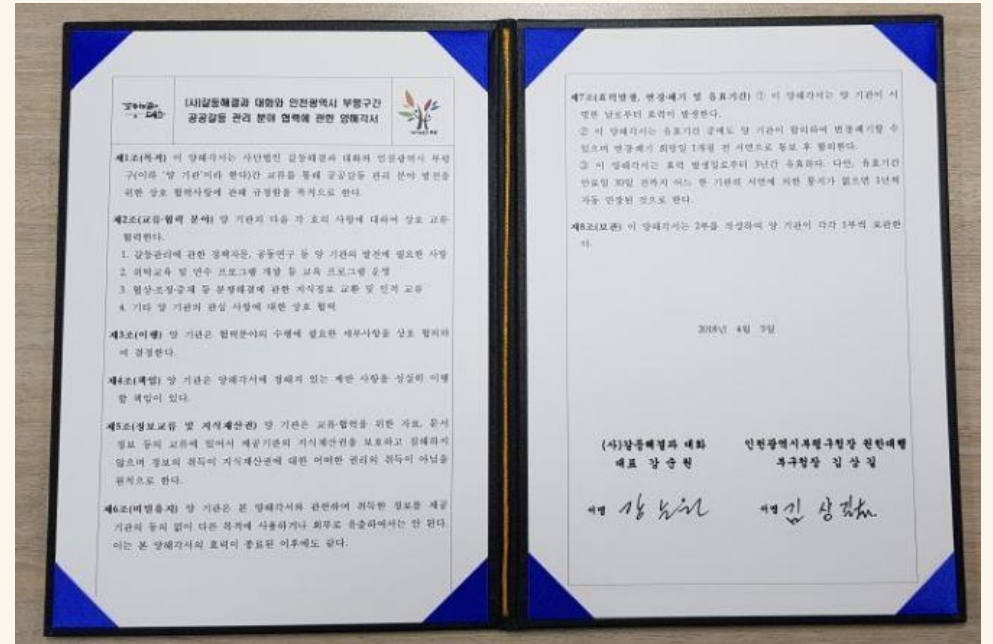 (사)갈등해결과 대화와 인천광역시 부평구간
공공갈등 관리 분야 협력에 관한 양해각서
제1조(목적) 이 양해각서는 사단법인 갈등해결과 대화와 인천광역시 부평
구(이하 '양 기관'이라 한다)간 교류를 통해 공공갈등 관리 분야 발전을
위한 상호 협력사항에 관해 규정함을 목적으로 한다.
제2조(교류·협력 분야) 양 기관의 다음 각 호의 사항에 대하여 상호 교류·
협력한다.
1. 갈등관리에 관한 정책자문, 공동연구 등 양 기관의 발전에 필요한 사항
2. 위탁교육 및 연수 프로그램 개발 등 교육 프로그램 운영
3. 협상·조정·중재 등 분쟁해결에 관한 지식정보 교환 및 인적 교류
4. 기타 양 기관의 관심 사항에 대한 상호 협력
제3조(이행) 양 기관은 협력분야의 수행에 필요한 세부사항을 상호 협의하
여 결정한다.
제4조(책임) 양 기관은 양해각서에 정해져 있는 제반 사항을 성실히 이행
할 책임이 있다.
제5조(정보교류 및 지식재산권) 양 기관은 교류·협력을 위한 자료, 문서
정보 등의 교류에 있어서 제공기관의 지식재산권을 보호하고 침해하지
않으며 정보의 취득이 지식재산권에 대한 어떠한 권리의 취득이 아님을
원칙으로 한다.
제6조(비밀유지) 양 기관은 본 양해각서와 관련하여 취득한 정보를 제공
기관의 동의 없이 다른 목적에 사용하거나 외부로 유출하여서는 안 된다.
이는 본 양해각서의 효력이 종료된 이후에도 같다.
제7조(효력발생, 변경·폐기 및 유효기간) ① 이 양해각서는 양 기관이 서
명한 날로부터 효력이 발생한다.
② 이 양해각서는 유효기간 중에도 양 기관이 합의하여 변경·폐기할 수
있으며 변경·폐기 희망일 1개월 전 서면으로 통보 후 협의한다.
③ 이 양해각서는 효력 발생일로부터 3년간 유효하다. 다만, 유효기간
만료일 30일 전까지 어느 한 기관의 서면에 의한 통지가 없으면 1년씩
자동 연장된 것으로 한다.
제8조(보관) 이 양해각서는 2부를 작성하여 양 기관이 각각 1부씩 보관한
다.
2018년 4월 9일
(사)갈등해결과 대화
대표 강순원
서명 강순원
인천광역시부평구청장 권한대행
부구청장 김상길
서명 김상길